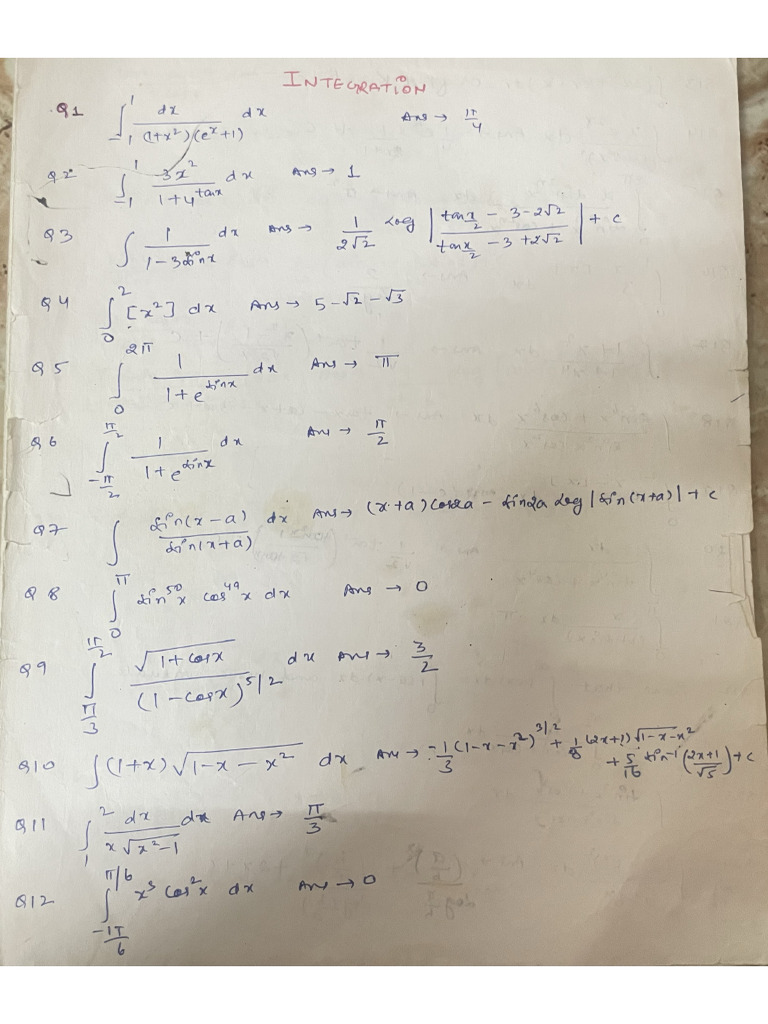 INTEGRATION
Q1 ∫_{-1}^{1} dx/((1+x²)(eˣ+1)) dx Ans → π/4
Q2 ∫_{-1}^{1} 3x²/(1+4^{tanx}) dx Ans → 1
Q3 ∫ 1/(1-3sinx) dx Ans → 1/(2√2) log |(tan x/2 - 3-2√2)/(tan x/2 - 3+2√2)| + c
Q4 ∫_{0}^{2} [x²] dx Ans → 5-√2-√3
Q5 ∫_{0}^{2π} 1/(1+e^{sinx}) dx Ans → π
Q6 ∫_{-π/2}^{π/2} 1/(1+e^{sinx}) dx Ans → π/2
Q7 ∫ sin(x-a)/sin(x+a) dx Ans → (x+a) cos2a - sin2a log |sin(x+a)| + c
Q8 ∫_{0}^{π} sin⁵⁰x cos⁴⁹x dx Ans → 0
Q9 ∫_{π/3}^{π/2} √(1+cosx)/(1-cosx)^{5/2} dx Ans → 3/2
Q10 ∫(1+x)√(1-x-x²) dx Ans → -1/3 (1-x-x²)^{3/2} + 1/8 (2x+1)√(1-x-x²)
+ 5/16 sin⁻¹((2x+1)/√5) + c
Q11 ∫_{1}^{2} dx/(x√(x²-1)) dx Ans → π/3
Q12 ∫_{-π/6}^{π/6} x³ cos²x dx Ans → 0